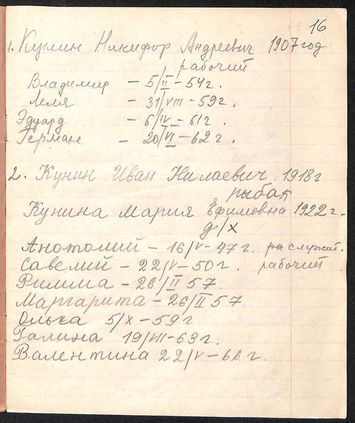 16
1. Кунин Никифор Андреевич 1907 год
рабочий
Владимир - 5/II - 54 г.
Леля - 31/VIII - 59 г.
Эдуард - 6/IV - 61 г.
Герман - 20/VI - 62 г.
2. Кунин Иван Нилаевич 1918 г
рыбак
Кунина Мария Ефимовна 1922 г.
д/х
Анотолий - 16/V - 47 г. служит.
Савелий - 22/V - 50 г. рабочий
Римма - 26/II 57.
Маргарита - 26/II 57
Ольга 5/X - 59 г
Галина 19/VII - 63 г.
Валентина 22/V - 66 г.